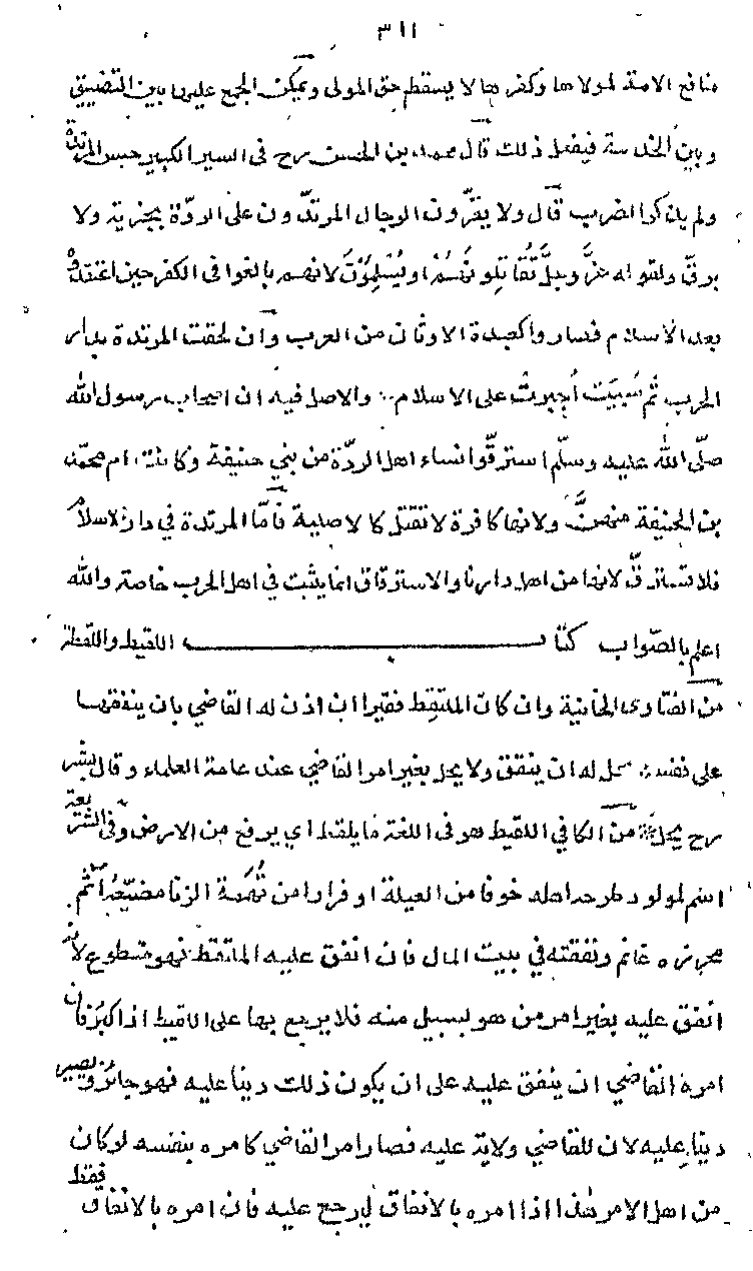 ٣١١
منافع الامة لمولاها وكفرها لا يسقط حق المولى ويمكن الجمع عليها بين التضييق
وبين الخدمة فيفعل ذلك قال محمد بن الحسن رح فى السير الكبير حبس المرتدة
ولم يذكر الضرب قال ولا يقرّون الرجال المرتدّون على الردّة بجزية ولا
برقّ ولقوله عزّ وجلّ تُقَاتِلونَهُمْ او يُسْلِمُوْنَ لانهم بالغوا فى الكفر حين اعتقدوه
بعد الاسلام فصاروا كعبدة الاوثان من العرب وان لحقت المرتدة بدار
الحرب ثم سُبِيَت اُجبِرتْ على الاسلام والاصل فيه ان اصحاب رسول الله
صلّى الله عليه وسلّم استرقّوا نساء اهل الردّة من بني حنيفة وكانت ام محمّد
بن الحنيفة منهنَّ ولانها كافرة لا تقتل كالاصلية فامّا المرتدة في دار الاسلام
فلا تسترقّ لانها من اهل دارنا والاسترقاق انما يثبت في اهل الحرب خاصة والله
اعلم بالصّواب كتاب اللقيط واللقطة
من الفتاوى الخانية وان كان الملتقِط فقيرا ان اذن له القاضي بان ينفقها
على نفسه حل له ان ينفق ولا يحل بغير امر القاضي عند عامة العلماء وقال بشر
رح يحل من الكافي اللقيط هو فى اللغة ما يلقط اي يرفع من الارض وفى الشريعة
اسم لمولود طرحه اهله خوفا من العيلة او فرارا من تُهَمَة الزنا مضيّعُه آثم
محرزه غانم ونفقته في بيت المال فان انفق عليه الملتقط فهو متطوع لانه
انفق عليه بغير امر من هو بسبيل منه فلا يرجع بها على اللقيط اذا كبرُ فان
امره القاضي ان ينفق عليه على ان يكون ذلك دينا عليه فهو جائز ويصير
دينا عليه لان للقاضي ولاية عليه فصار امر القاضي كامره بنفسه لو كان
من اهل الامر هذا اذا امره بالانفاق ليرجع عليه فان امره بالانفاق فقط